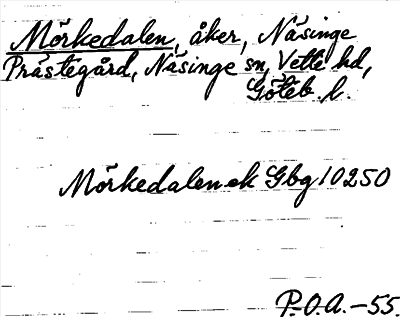 Mörkedalen, åker, Näsinge
Prästegård, Näsinge sn, Vette hd,
Göteb. l.
Mörkedalen ek Gbg 10250
P.O.A. -55.